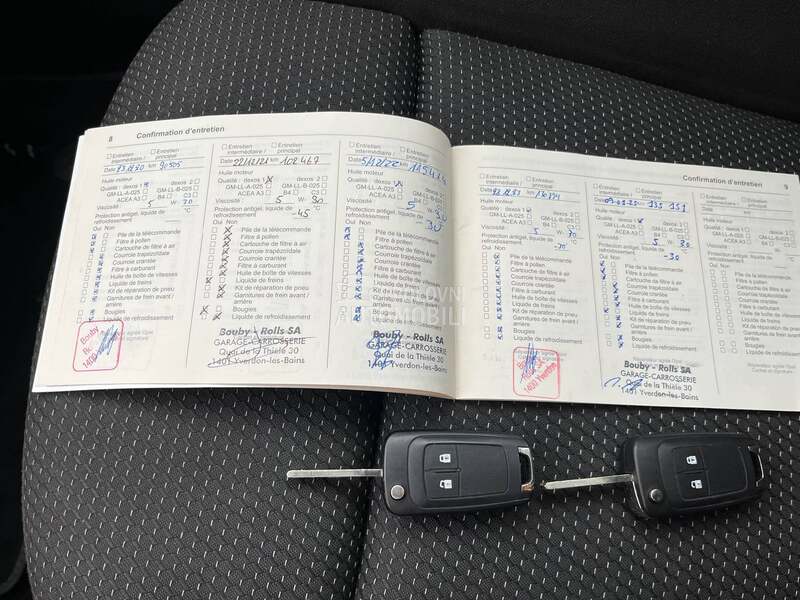 8 Confirmation d'entretien
Entretien intermédiaire / Entretien principal
Date km 90505
Huile moteur
Qualité : dexos 1 dexos 2
GM-LL-A-025 GM-LL-B-025
ACEA A3 B4 C3
Viscosité 5 W- 30
Protection antigel, liquide de refroidissement °C
Oui Non
Pile de la télécommande
Filtre à pollen
Cartouche de filtre à air
Courroie trapézoïdale
Courroie crantée
Filtre à carburant
Huile de boîte de vitesses
Liquide de freins
Kit de réparation de pneu
Garnitures de frein avant / arrière
Bougies
Liquide de refroidissement
Bouby
1400
Entretien intermédiaire / Entretien principal
Date 22/12/21 km 102 467
Huile moteur
Qualité : dexos 1 dexos 2
GM-LL-A-025 GM-LL-B-025
ACEA A3 B4 C3
Viscosité 5 W- 30
Protection antigel, liquide de refroidissement -45 °C
Oui Non
Pile de la télécommande
Filtre à pollen
Cartouche de filtre à air
Courroie trapézoïdale
Courroie crantée
Filtre à carburant
Huile de boîte de vitesses
Liquide de freins
Kit de réparation de pneu
Garnitures de frein avant / arrière
Bougies
Liquide de refroidissement
Bouby - Rolls SA
GARAGE-CARROSSERIE
Quai de la Thièle 30
1401 Yverdon-les-Bains
Entretien intermédiaire / Entretien principal
Date 5/12/22 km
Huile moteur
Qualité : dexos 1 dexos 2
GM-LL-A-025 GM-LL-B-025
ACEA A3 B4 C3
Viscosité 5 W- 30
Protection antigel, liquide de refroidissement -30
Oui Non
Pile de la télécommande
Filtre à pollen
Cartouche de filtre à air
Courroie trapézoïdale
Courroie crantée
Filtre à carburant
Huile de boîte de vitesses
Liquide de freins
Kit de réparation de pneu
Garnitures de frein avant / arrière
Bougies
Liquide de refroidissement
Bouby - Rolls SA
GARAGE-CARROSSERIE
Quai de la Thièle 30
1401 Yverdon-les-Bains
Confirmation d'entretien 9
Entretien intermédiaire / Entretien principal
Date km
Huile moteur
Qualité : dexos 1 dexos 2
GM-LL-A-025 GM-LL-B-025
ACEA A3 B4 C3
Viscosité 5 W- 30
Protection antigel, liquide de refroidissement °C
Oui Non
Pile de la télécommande
Filtre à pollen
Cartouche de filtre à air
Courroie trapézoïdale
Courroie crantée
Filtre à carburant
Huile de boîte de vitesses
Liquide de freins
Kit de réparation de pneu
Garnitures de frein avant / arrière
Bougies
Liquide de refroidissement
Bouby
1400
Entretien intermédiaire / Entretien principal
Date km
Huile moteur
Qualité : dexos 1 dexos 2
GM-LL-A-025 GM-LL-B-025
ACEA A3 B4 C3
Viscosité 5 W- 30
Protection antigel, liquide de refroidissement -30
Oui Non
Pile de la télécommande
Filtre à pollen
Cartouche de filtre à air
Courroie trapézoïdale
Courroie crantée
Filtre à carburant
Huile de boîte de vitesses
Liquide de freins
Kit de réparation de pneu
Garnitures de frein avant / arrière
Bougies
Liquide de refroidissement
Bouby - Rolls SA
GARAGE-CARROSSERIE
de la Thièle 30
1401 Yverdon-les-Bains
Entretien intermédiaire / Entretien principal
Date km
Huile moteur
Qualité : dexos 1 dexos 2
GM-LL-A-025 GM-LL-B-025
ACEA A3 B4 C3
Viscosité W-
Protection antigel, liquide de refroidissement °C
Oui Non
Pile de la télécommande
Filtre à pollen
Cartouche de filtre à air
Courroie trapézoïdale
Courroie crantée
Filtre à carburant
Huile de boîte de vitesses
Liquide de freins
Kit de réparation de pneu
Garnitures de frein avant / arrière
Bougies
Liquide de refroidissement